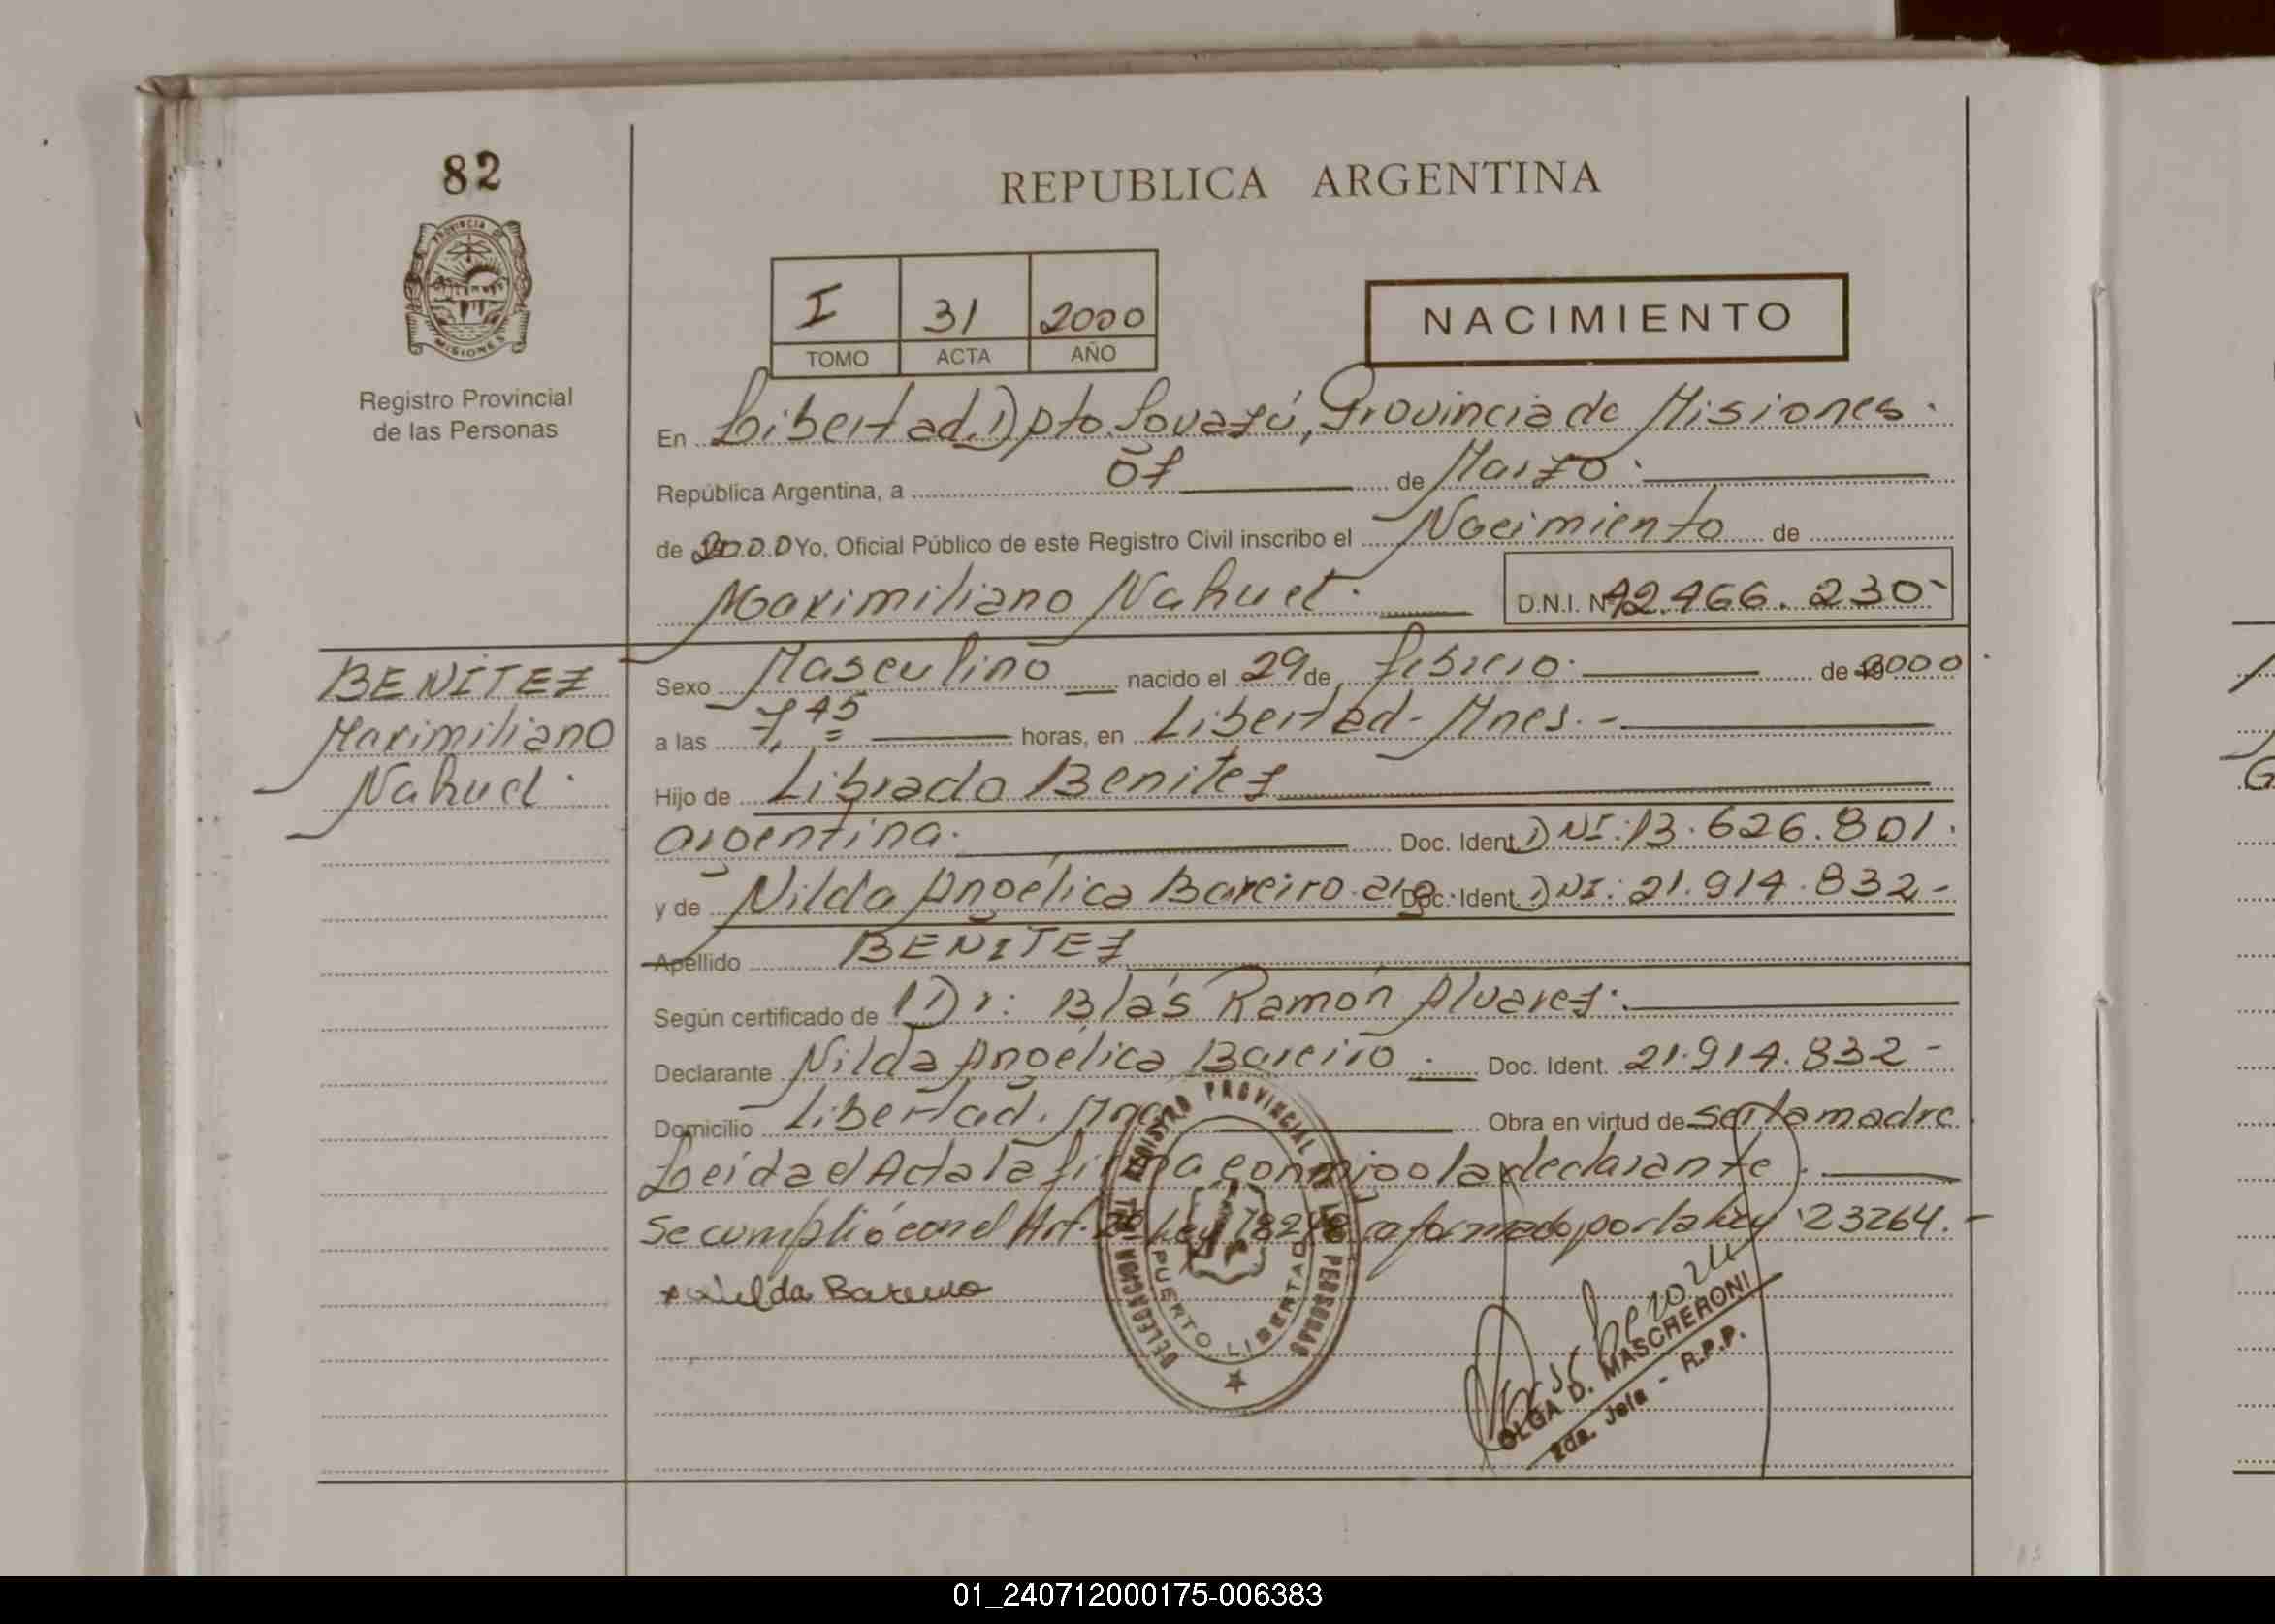 82
PROVINCIA DE
MISIONES
Registro Provincial
de las Personas
REPUBLICA ARGENTINA
I 31 2000
TOMO ACTA AÑO
NACIMIENTO
En Libertad, Dpto. Iguazú, Provincia de Misiones.
República Argentina, a 07 de Marzo.
de 2000 Yo, Oficial Público de este Registro Civil inscribo el Nacimiento de
Maximiliano Nahuel. D.N.I. Nº 42.466.230-
BENÍTEZ
Maximiliano
Nahuel.
Sexo Masculino nacido el 29 de febrero. de 2000.
a las 7,45 horas, en Libertad - Mnes. -
Hijo de Librado Benítez
argentina. Doc. Ident. DNI: 13.626.801.
y de Nilda Angélica Bareiro. arg. Doc. Ident. DNI: 21.914.832-
Apellido BENITEZ
Según certificado de Dr: Blás Ramón Alvarez.
Declarante Nilda Angélica Bareiro. Doc. Ident. 21.914.832-
Domicilio Libertad. Mnes Obra en virtud de ser la madre.
Leída el Acta la firma conmigo la declarante.
Se cumplió con el Art. 2º Ley 18248 reformado por la ley 23264.-
x Nilda Bareiro
REGISTRO PROVINCIAL DE LAS PERSONAS
DELEGACION
PUERTO LIBERTAD
OLGA D. MASCHERONI
2da. Jefa - R.P.P.
01_240712000175-006383